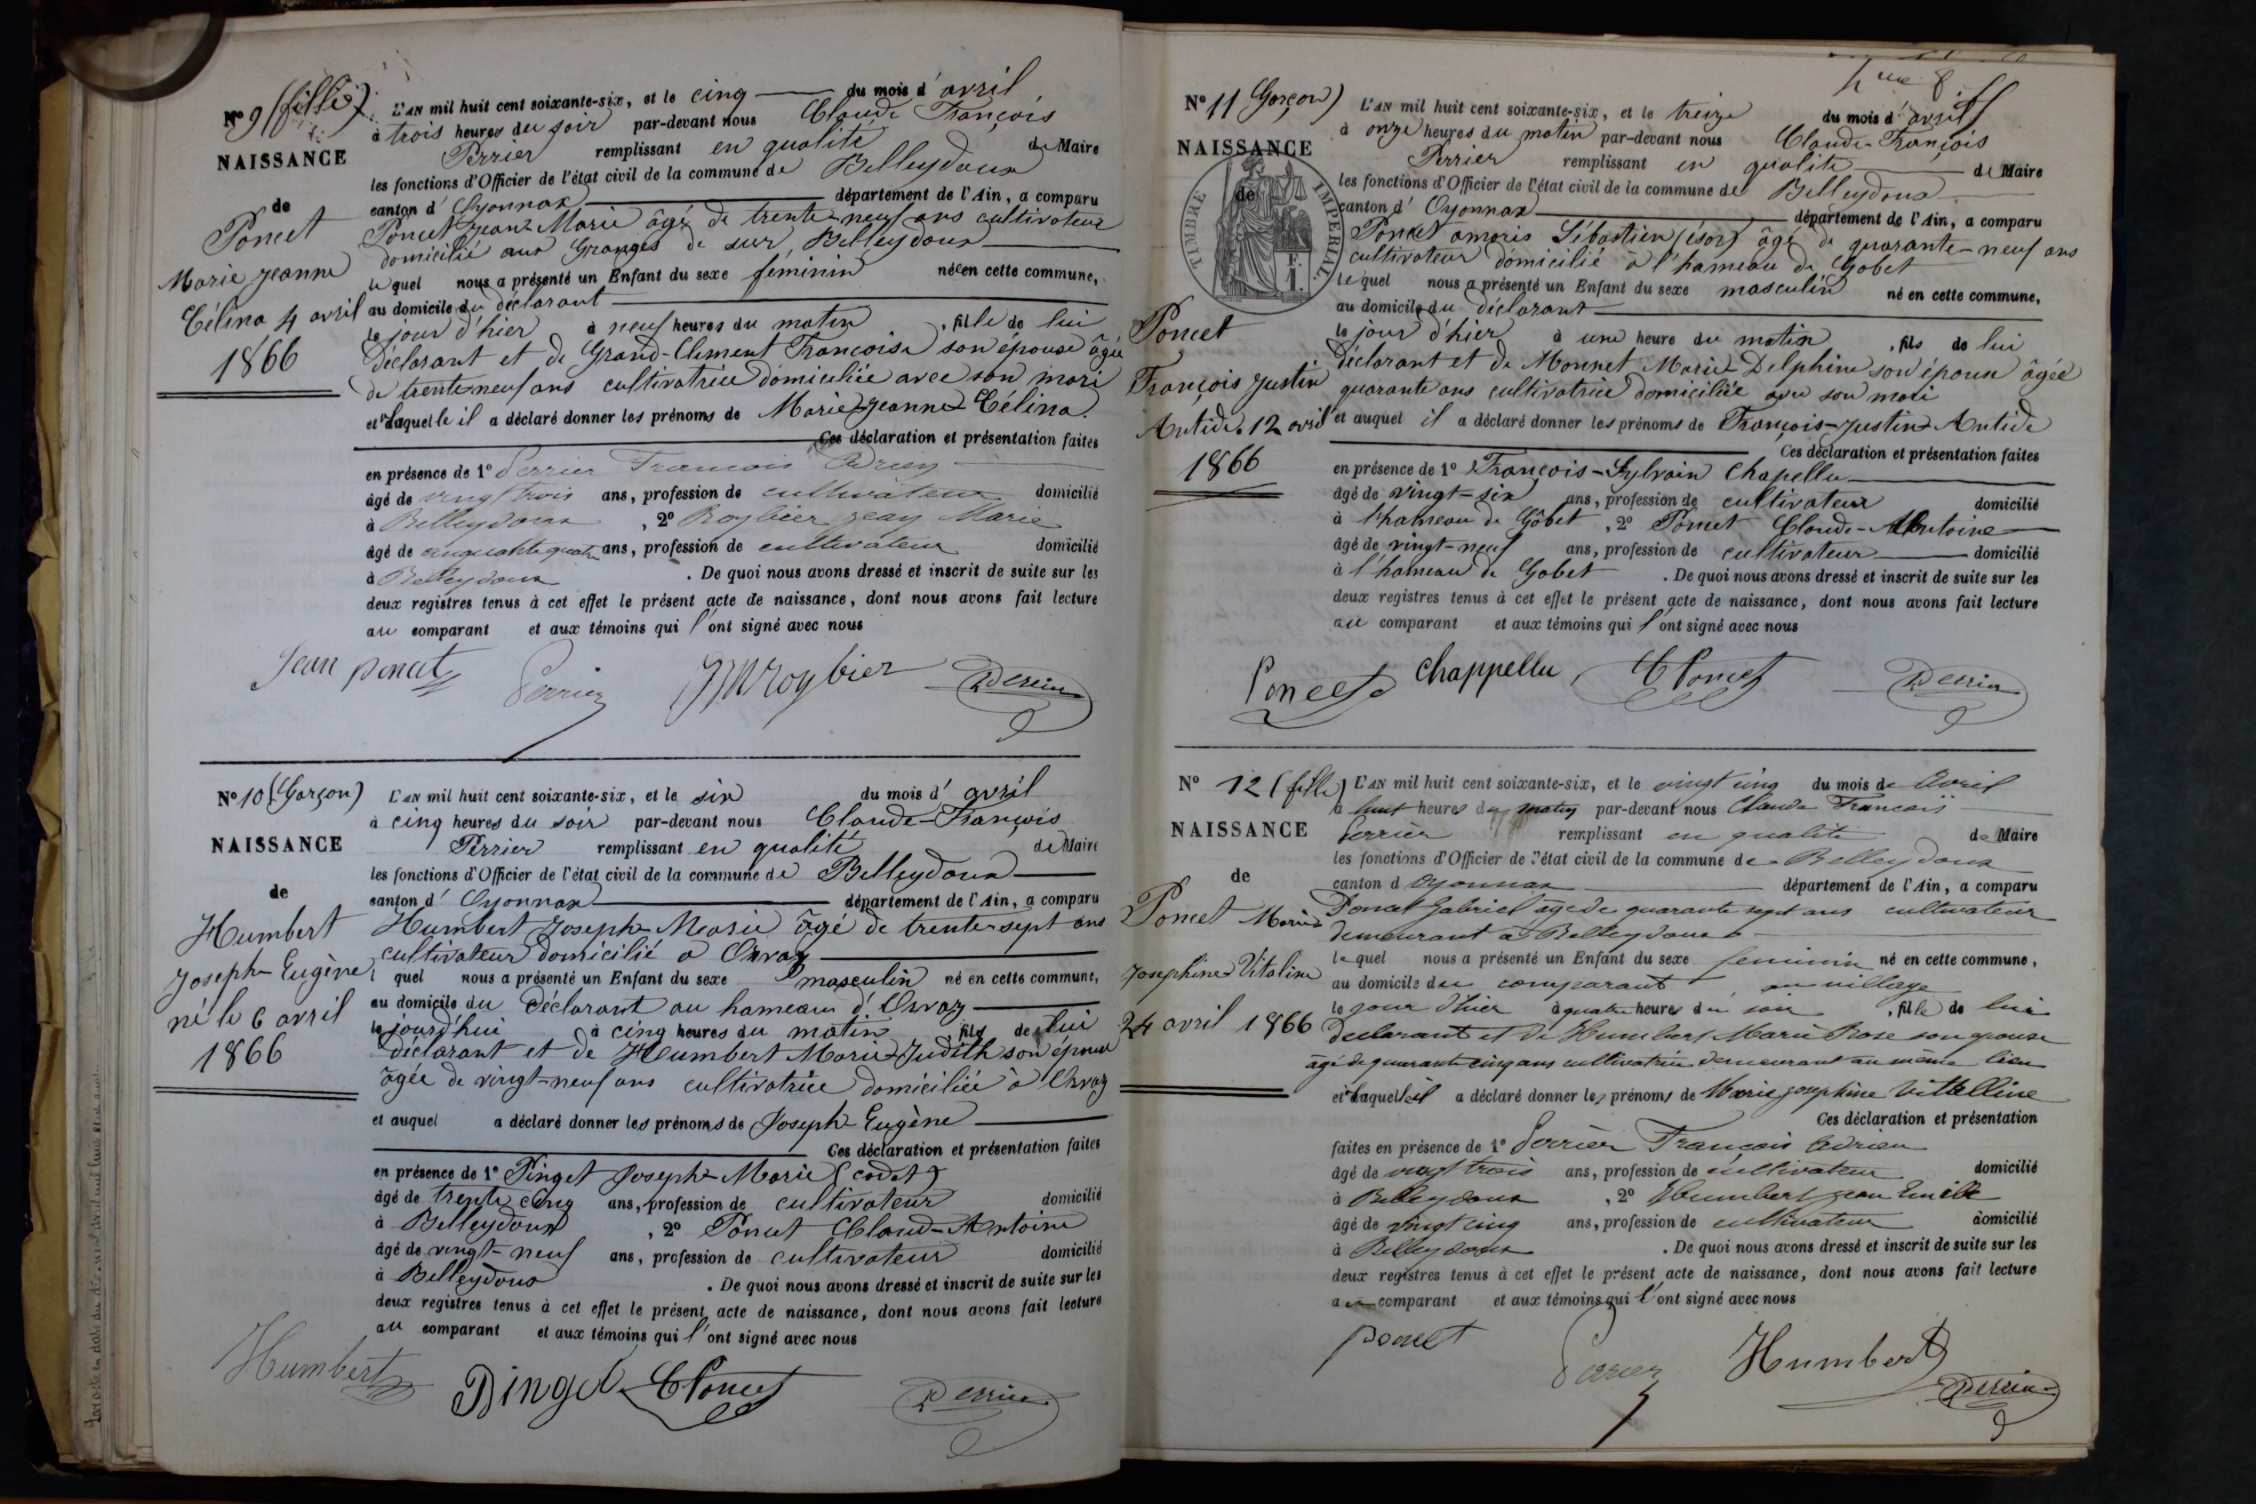 N° 9 (fille)
NAISSANCE
de
Poncet
Marie Jeanne
Célina 4 avril
1866
L'AN mil huit cent soixante-six, et le cinq du mois d'avril
à trois heures du soir par-devant nous Claude François
Perrier remplissant en qualité de Maire
les fonctions d'Officier de l'état civil de la commune de Belleydoux
canton d'Oyonnax département de l'Ain, a comparu
Poncet Jean-Marie âgé de trente-neuf ans cultivateur
domicilié aux Granges de sur Belleydoux
le quel nous a présenté un Enfant du sexe féminin née en cette commune,
au domicile du déclarant
le jour d'hier à neuf heures du matin, fille de lui
déclarant et de Grand-Clement Françoise son épouse âgée
de trente neuf ans cultivatrice domiciliée avec son mari
et à laquelle il a déclaré donner les prénoms de Marie-Jeanne-Célina.
Ces déclaration et présentation faites
en présence de 1° Perrier François Adrien
âgé de vingt trois ans, profession de cultivateur domicilié
à Belleydoux, 2° Roybier Jean Marie
âgé de cinquante quatre ans, profession de cultivateur domicilié
à Belleydoux. De quoi nous avons dressé et inscrit de suite sur les
deux registres tenus à cet effet le présent acte de naissance, dont nous avons fait lecture
au comparant et aux témoins qui l'ont signé avec nous
Jean poncet Perrier JMRoybier Perrier
N° 10 (Garçon)
NAISSANCE
de
Humbert
Joseph-Eugène
né le 6 avril
1866
L'AN mil huit cent soixante-six, et le six du mois d'avril
à cinq heures du soir par-devant nous Claude-François
Perrier remplissant en qualité de Maire
les fonctions d'Officier de l'état civil de la commune de Belleydoux
canton d'Oyonnax département de l'Ain, a comparu
Humbert Joseph-Marie âgé de trente-sept ans
cultivateur domicilié à Orvaz
quel nous a présenté un Enfant du sexe masculin né en cette commune,
au domicile du déclarant au hameau d'Orvaz
le jourd'hui à cinq heures du matin fils de lui
déclarant et de Humbert Marie-Judith son épouse
âgée de vingt-neuf ans cultivatrice domiciliée à Orvaz
et auquel a déclaré donner les prénoms de Joseph-Eugène
Ces déclaration et présentation faites
en présence de 1° Pinget Joseph-Marie (cadet)
âgé de trente cinq ans, profession de cultivateur domicilié
à Belleydoux, 2° Poncet Claude-Antoine
âgé de vingt-neuf ans, profession de cultivateur domicilié
à Belleydoux. De quoi nous avons dressé et inscrit de suite sur les
deux registres tenus à cet effet le présent acte de naissance, dont nous avons fait lecture
au comparant et aux témoins qui l'ont signé avec nous
Humbert Pinget C Poncet Perrier
N° 11 (Garçon)
NAISSANCE
de
TIMBRE IMPERIAL.
Poncet
François Justin
Antide. 12 avril
1866
L'AN mil huit cent soixante-six, et le treize du mois d'avril
à onze heures du matin par-devant nous Claude-François
Perrier remplissant en qualité de Maire
les fonctions d'Officier de l'état civil de la commune de Belleydoux
canton d'Oyonnax département de l'Ain, a comparu
Poncet Sébastien âgé de quarante-neuf ans
cultivateur domicilié à l'hameau de Gobet
le quel nous a présenté un Enfant du sexe masculin né en cette commune,
au domicile du déclarant
le jour d'hier à une heure du matin, fils de lui
déclarant et de Monnet Marie-Delphine son épouse âgée
quarante ans cultivatrice domiciliée avec son mari
et auquel il a déclaré donner les prénoms de François-Justin-Antide
Ces déclaration et présentation faites
en présence de 1° François-Sylvain Chapellu
âgé de vingt-six ans, profession de cultivateur domicilié
à l'hameau de Gobet, 2° Poncet Claude-Antoine
âgé de vingt-neuf ans, profession de cultivateur domicilié
à l'hameau de Gobet. De quoi nous avons dressé et inscrit de suite sur les
deux registres tenus à cet effet le présent acte de naissance, dont nous avons fait lecture
au comparant et aux témoins qui l'ont signé avec nous
Poncet Chappellu C Poncet Perrier
N° 12 (fille)
NAISSANCE
de
Poncet Marie
Joséphine Vitaline
24 avril 1866
L'AN mil huit cent soixante-six, et le vingt cinq du mois de avril
à huit heures du matin par-devant nous Claude Francois
Perrier remplissant en qualité de Maire
les fonctions d'Officier de l'état civil de la commune de Belleydoux
canton d Oyonnax département de l'Ain, a comparu
Poncet Gabriel âgé de quarante sept ans cultivateur
demeurant à Belleydoux
le quel nous a présenté un Enfant du sexe feminin né en cette commune,
au domicile du comparant au village
le jour d'hier à quatre heures du soir, fille de lui
declarant et de Humbert Marie Rose son epouse
agé de quarante cinq ans cultivatrice demeurant au même lieu
et à laquelle il a déclaré donner les prénoms de Marie josephine Vittelline
Ces déclaration et présentation
faites en présence de 1° Perrier François Adrien
âgé de vingt trois ans, profession de cultivateur domicilié
à Belleydoux, 2° Humbert jean Emille
âgé de vingt cinq ans, profession de cultivateur domicilié
à Belleydoux. De quoi nous avons dressé et inscrit de suite sur les
deux registres tenus à cet effet le présent acte de naissance, dont nous avons fait lecture
au comparant et aux témoins qui l'ont signé avec nous
poncet Perrier Humbert Perrier